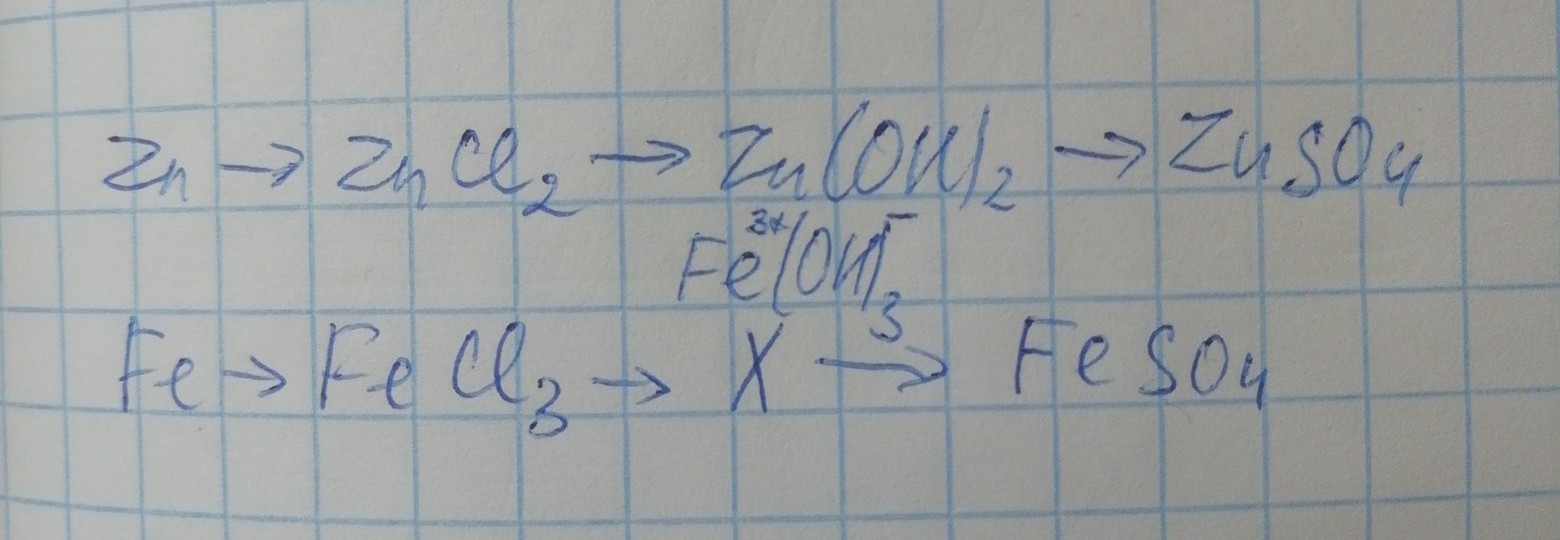 Zn → ZnCl₂ → Zn(OH)₂ → ZnSO₄
Fe³⁺(OH)⁻₃
Fe → FeCl₃ → X → FeSO₄